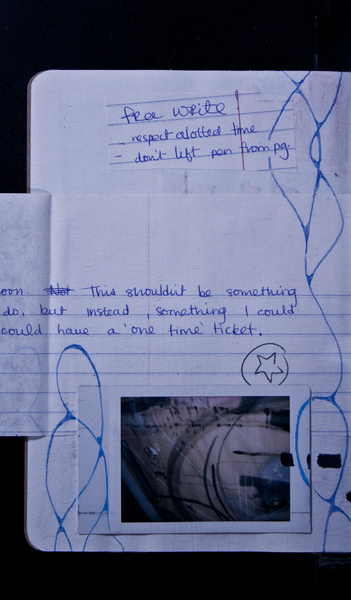 free write
- respect alotted time
- don't lift pen from pg.
oon. Not This shouldn't be something
do, but instead, something I could
could have a 'one time' ticket.